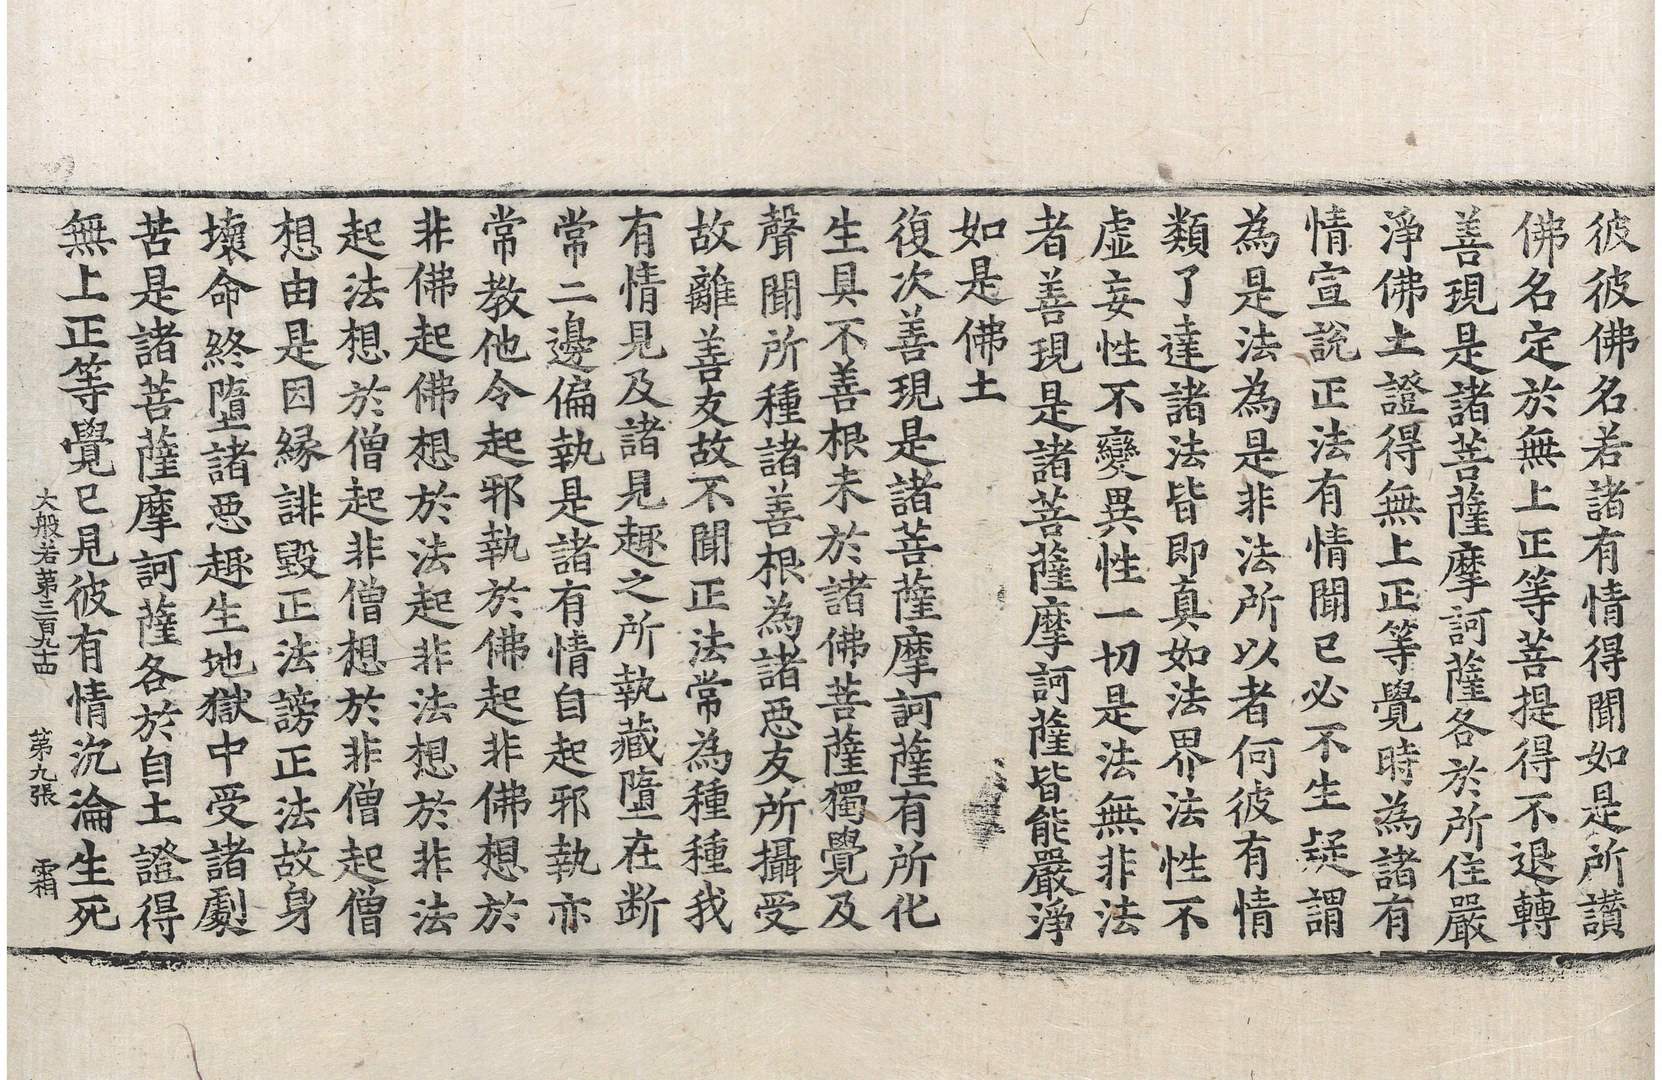 彼彼佛名若諸有情得聞如是所讃
佛名定於無上正等菩提得不退轉
善現是諸菩薩摩訶薩各於所住嚴
淨佛土證得無上正等覺時為諸有
情宣說正法有情聞已必不生疑謂
為是法為是非法所以者何彼有情
類了達諸法皆即真如法界法性不
虛妄性不變異性一切是法無非法
者善現是諸菩薩摩訶薩皆能嚴淨
如是佛土
復次善現是諸菩薩摩訶薩有所化
生具不善根未於諸佛菩薩獨覺及
聲聞所種諸善根為諸惡友所攝受
故離善友故不聞正法常為種種我
有情見及諸見趣之所執藏墮在断
常二邊偏執是諸有情自起邪執亦
常教他令起邪執於佛起非佛想於
非佛起佛想於法起非法想於非法
起法想於僧起非僧想於非僧起僧
想由是因緣誹毀正法謗正法故身
壞命終墮諸惡趣生地獄中受諸劇
苦是諸菩薩摩訶薩各於自土證得
無上正等覺已見彼有情沉淪生死
大般若第三百九十四 第九張 霜